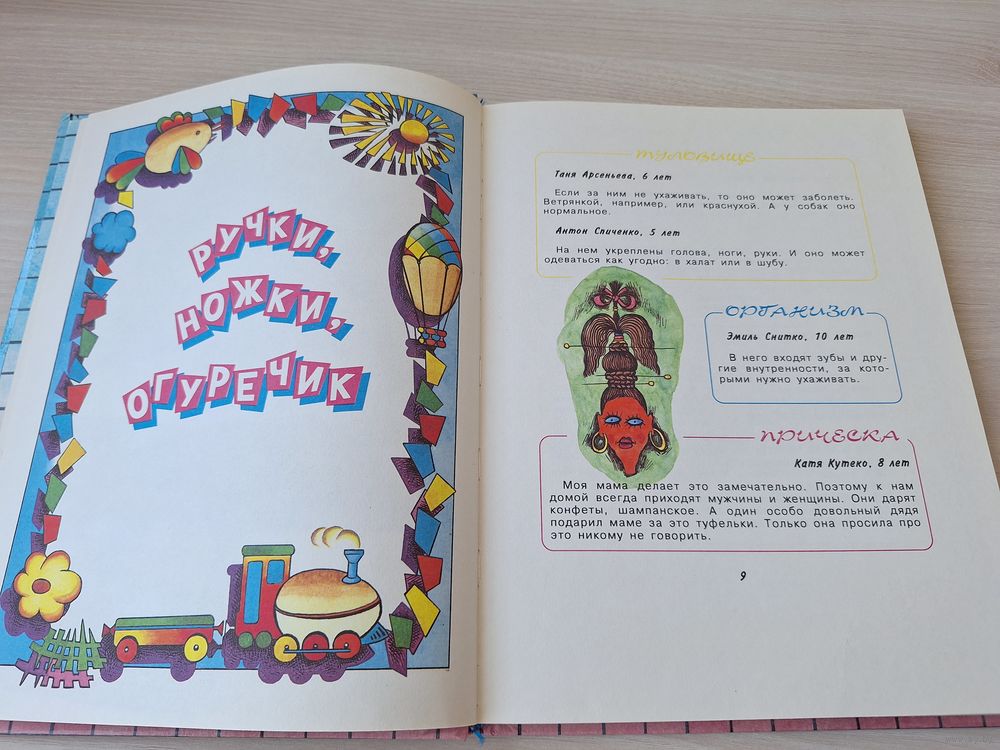 РУЧКИ,
НОЖКИ,
ОГУРЕЧИК
ТУЛОВИЩЕ
Таня Арсеньева, 6 лет
Если за ним не ухаживать, то оно может заболеть.
Ветрянкой, например, или краснухой. А у собак оно
нормальное.
Антон Спиченко, 5 лет
На нем укреплены голова, ноги, руки. И оно может
одеваться как угодно: в халат или в шубу.
ОРГАНИЗМ
Эмиль Снитко, 10 лет
В него входят зубы и дру-
гие внутренности, за кото-
рыми нужно ухаживать.
ПРИЧЕСКА
Катя Кутеко, 8 лет
Моя мама делает это замечательно. Поэтому к нам
домой всегда приходят мужчины и женщины. Они дарят
конфеты, шампанское. А один особо довольный дядя
подарил маме за это туфельки. Только она просила про
это никому не говорить.
9